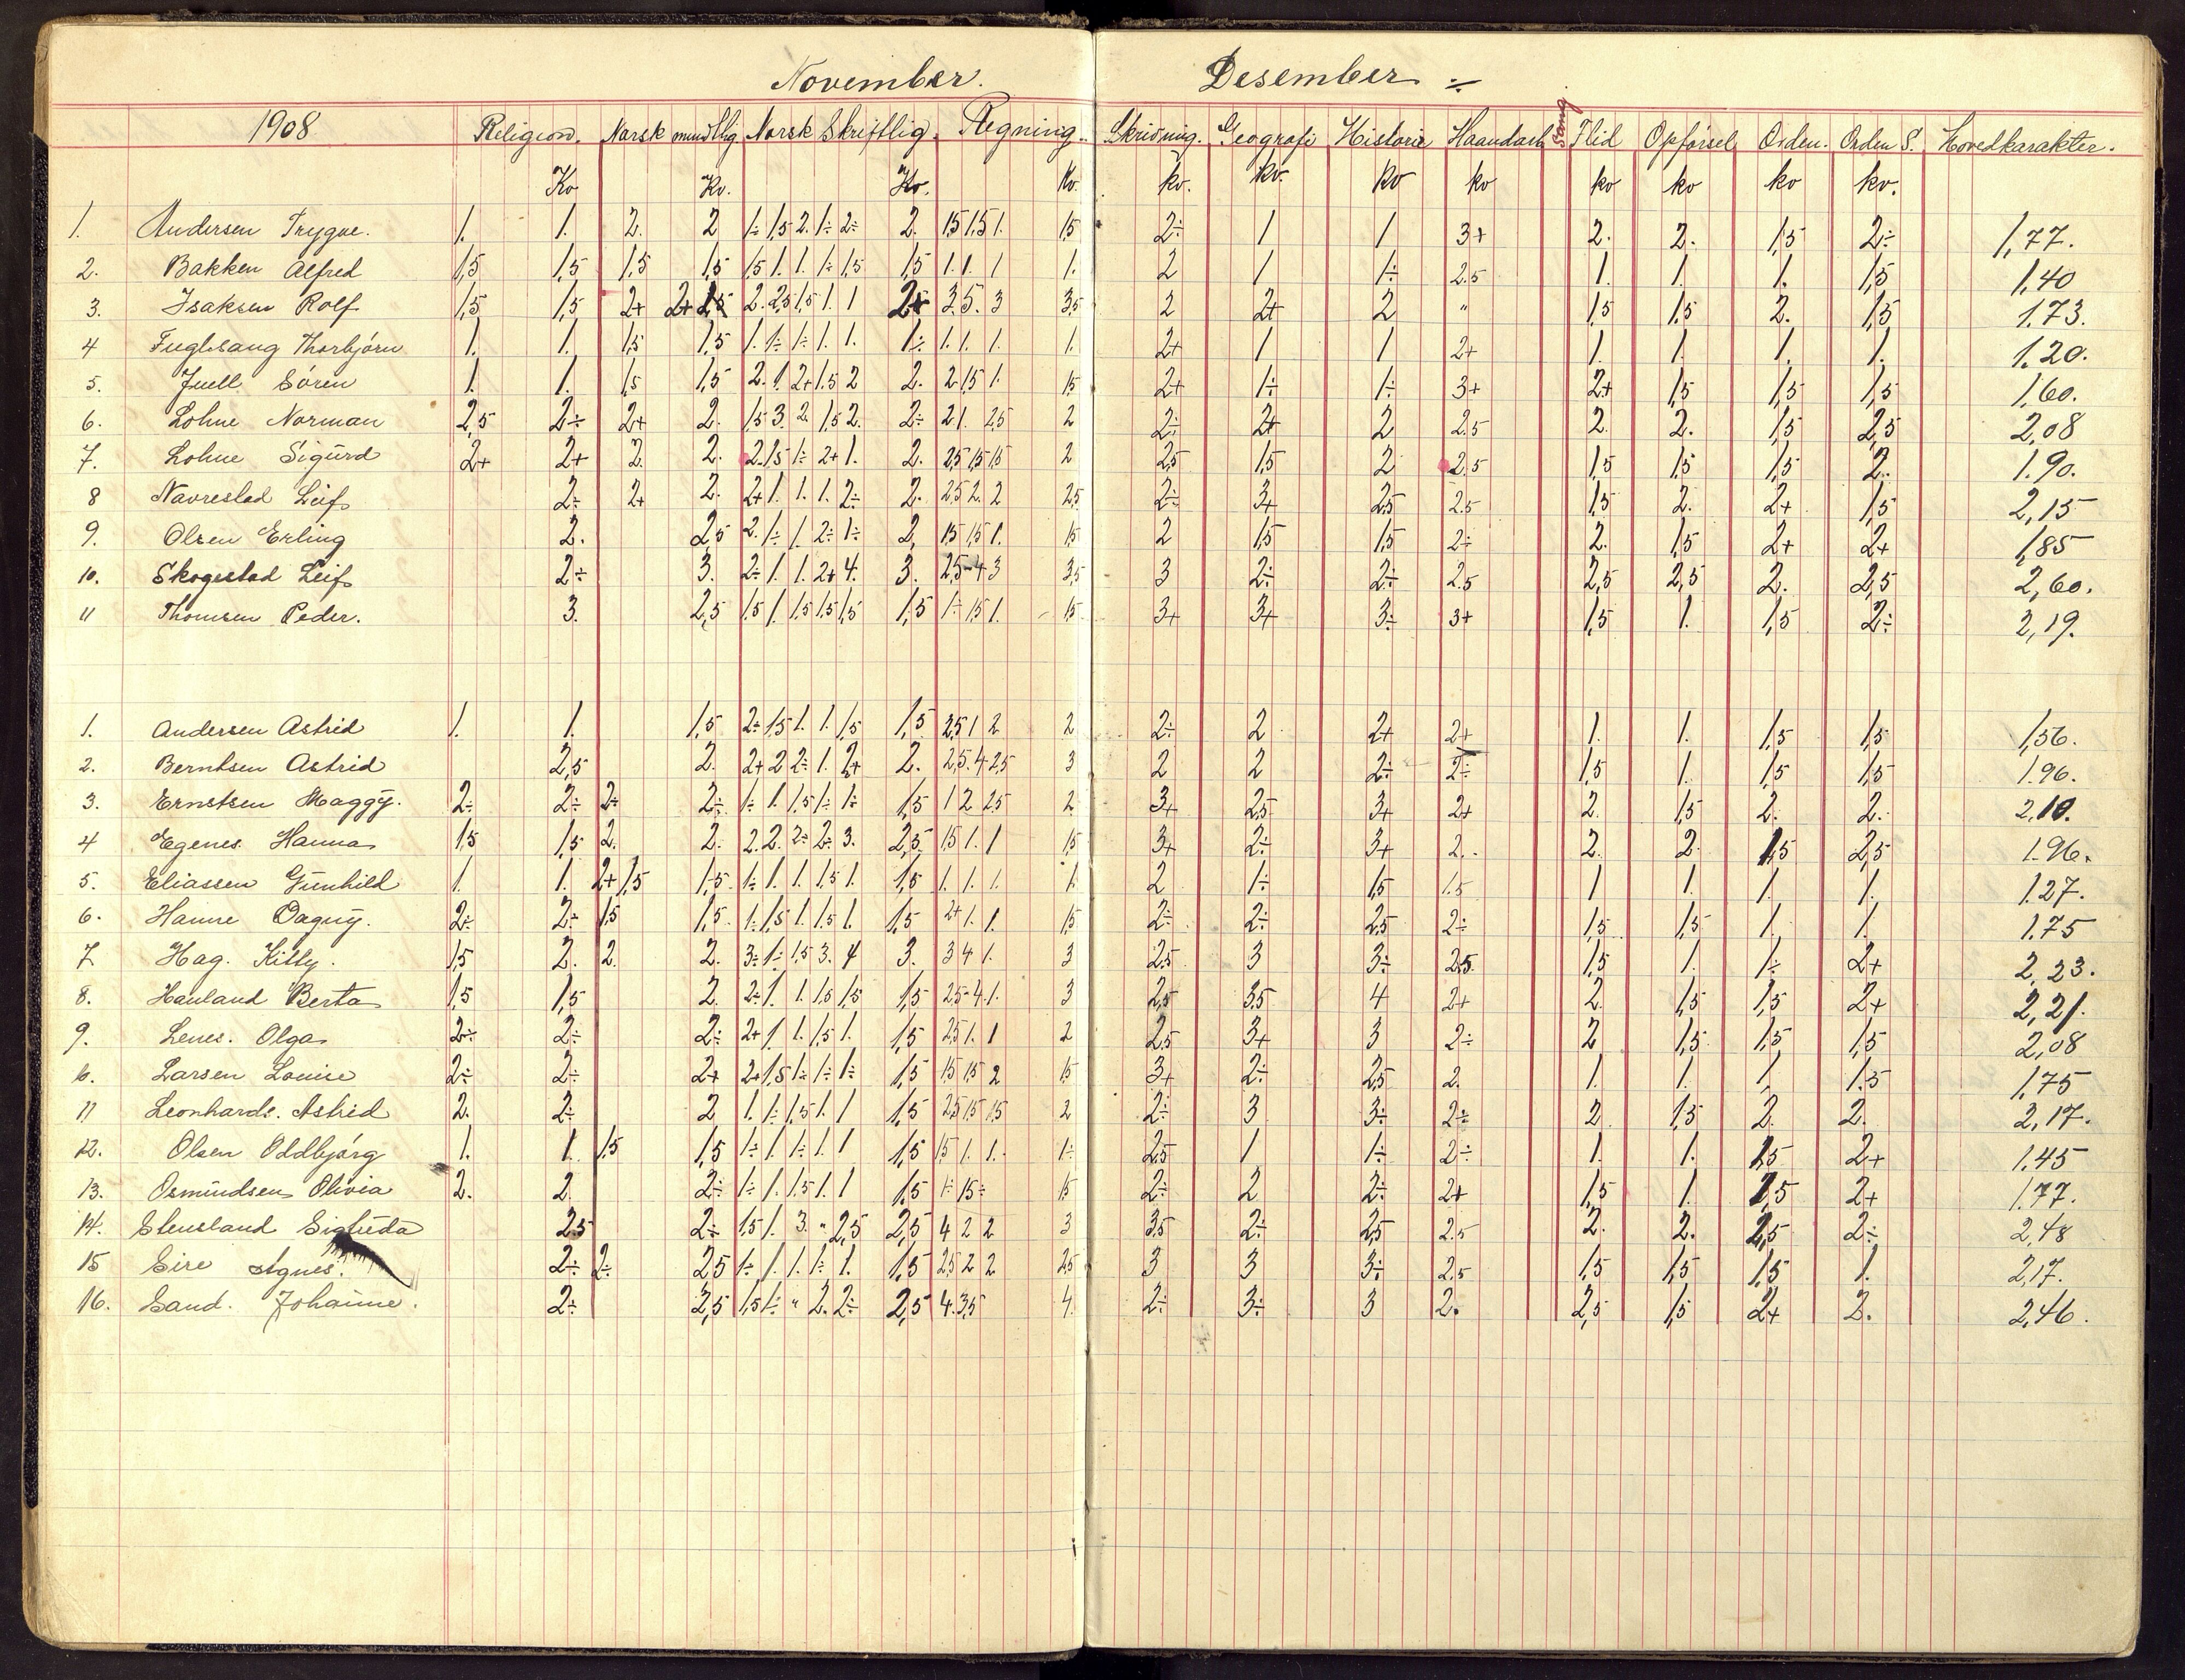 November. Desember ÷
1908 Religion. Norsk mundtlig. Norsk Skriftlig. Regning. Skrivning. Geografi Historie Haandarb Sang Flid Opførsel Orden. Orden S. Hovedkarakter.
Kv Kv. Kv. Kv. kv. kv. kv kv kv kv kv kv.
1. Andersen Trygve. 1. 1. 2. 2 1÷ 1,5 2. 1÷ 2÷ 2. 1,5 1,5 1. 1,5 2÷ 1 1 3+ 2. 2. 1,5 2÷ 1,77.
2. Bakken Alfred 1,5 1,5 1,5 1,5 1,5 1. 1. 1÷ 1,5 1,5 1. 1. 1 1. 2 1 1÷ 2.5 1. 1. 1. 1,5 1,40
3. Isaksen Rolf 1,5 1,5 2+ 2+ 2. 2,5 1,5 1. 1 3.5. 3 3,5 2 2+ 2 " 1,5 1,5 2. 1,5 1.73.
4 Fuglesang Thorbjørn 1. 1. 1,5 1,5 1. 1÷ 1÷ 1. 1. 1÷ 1. 1. 1. 1. 2+ 1 1 2+ 1. 1. 1. 1. 1.20.
5. Juell Søren 1. 1. 1,5 1,5 2. 1. 2+ 1.5 2 2. 2 1,5 1. 1,5 2+ 1÷ 1÷ 3+ 2+ 1,5 1,5 1,5 1,60.
6. Lohne Norman 2,5 2÷ 2+ 2. 1,5 3. 2. 1,5 2. 2÷ 2 1. 2,5 2 2÷ 2+ 2 2.5 2. 2. 1,5 2,5 2,08
7. Lohne Sigurd 2+ 2+ 2. 2. 2. 1,5 1÷ 2+ 1. 2. 2,5 1,5 1,5 2 2,5 1,5 2 2.5 1,5 1,5 1,5 2. 1.90.
8 Navrestad Leif 2÷ 2+ 2. 2+ 1. 1. 1. 2÷ 2. 2,5 2. 2 2,5 2÷ 3+ 2,5 2.5 1,5 2. 2+ 1,5 2,15
9. Olsen Erling 2. 2,5 2. 1÷ 1. 2÷ 1÷ 2. 1,5 1,5 1. 1,5 2 1,5 1,5 2÷ 2. 1,5 2+ 2+ 1,85
10. Skogestad Leif 2÷ 3. 2÷ 1. 1. 2+ 4. 3. 2,5 - 4 3 3,5 3 2÷ 2÷ 2.5 2,5 2,5 2. 2,5 2,60.
11 Thomsen Peder. 3. 2,5 1,5 1. 1,5 1,5 1,5 1,5 1÷ 1,5 1. 1,5 3+ 3+ 3÷ 3+ 1,5 1. 1,5 2÷ 2,19.
1. Andersen Astrid 1. 1. 1,5 2÷ 1,5 1. 1. 1,5 1,5 2,5 1 2 2 2÷ 2 2+ 2+ 1. 1. 1,5 1,5 1,56.
2. Berntsen Astrid 2,5 2. 2+ 2 2÷ 1. 2+ 2. 2,5. 4 2,5 3 2 2 2÷ 2÷ 1,5 1. 1,5 1,5 1.96.
3. Ernstsen Maggy. 2÷ 2÷ 2÷ 2÷ 1÷ 1. 1,5 1÷ 1÷ 1,5 1 2 2,5 2 3+ 2,5 3+ 2+ 2. 1,5 2. 2. 2,10.
4 Egenes Hanna 1,5 1,5 2. 2. 2. 2. 2÷ 2÷ 3. 2,5. 1,5 1. 1 1,5 3+ 2÷ 3+ 2. 2. 2. 1,5 2,5 1.96.
5. Eliassen Gunhild 1. 1. 2+ 1,5 1,5. 1÷ 1. 1. 1,5 1. 1,5 1. 1. 1. 1. 2 1÷ 1,5 1.5 1 1. 1. 1. 1.27.
6. Hanne Dagny. 2÷ 2÷ 1,5 1,5. 1÷ 1,5 1. 1.5 1. 1,5 2+ 1. 1. 1,5 2÷ 2÷ 2,5 2÷ 1,5 1,5 1. 1. 1.75
7. Hag. Kitty. 1,5 2. 2. 2. 3÷ 1÷ 1,5 3. 4 3. 3 4 1. 3 2,5 3 3÷ 2,5. 1,5 1. 1÷ 2+ 2,23.
8. Hauland Berta 1,5 1,5 2. 2÷ 1. 1. 1,5 1,5 1,5 2,5 - 4. 1. 3 2,5 3,5 4 2+ 2. 1,5 1,5 2+ 2,21.
9. Lenes. Olga 2÷ 2÷ 2÷ 2+ 1 1. 1,5 1. 1,5 2,5 1. 1 2 2,5 3+ 3 2÷ 2 1,5 1,5 1,5 2,08
10. Larsen Louise 2÷ 2÷ 2+ 2+ 1,5 1÷ 1÷ 1÷ 1,5 1,5 1,5 2 1,5 3+ 2÷ 2,5 2. 1. 1. 1. 1.5 1,75
11 Leonhards. Astrid 2. 2÷ 2 1. 1÷ 1,5 1. 1 1,5 2,5 1,5 1,5 2 2÷ 3 3÷ 2÷ 2. 1,5 2. 2. 2,17.
12. Olsen Oddbjørg 1. 1. 1,5 1,5 1÷ 1. 1÷ 1. 1 1,5 1,5 1. 1. 1÷ 2,5 1 1÷ 2÷ 1. 1. 1,5 2+ 1,45
13. Osmundsen Olivia 2. 2. 2÷ 1÷ 1. 1.5 1. 1 1,5 1÷ 1,5÷ 1,5 2÷ 2 2÷ 2+ 1,5 1. 1,5 2+ 1.77.
14. Stensland 2.5 2÷ 1,5 1. 3. " 2,5 2,5 4 2 2 3 3,5 2÷ 2,5 2.5 2. 2. 2,5 2÷ 2,48
15 Sire Agnes. 2÷ 2÷ 2,5 1÷ 1. 1. 1÷ 1. 1,5 2,5 2 2 2,5 3 3 3÷ 2.5 1,5 1,5 1,5 1. 2,17.
16. Sand. Johanne. 2÷ 2,5 1,5 1÷ " 2. 2÷ 2,5 4. 3,5 4. 2÷ 3÷ 3 2. 2,5 1,5 2+ 2. 2,46.